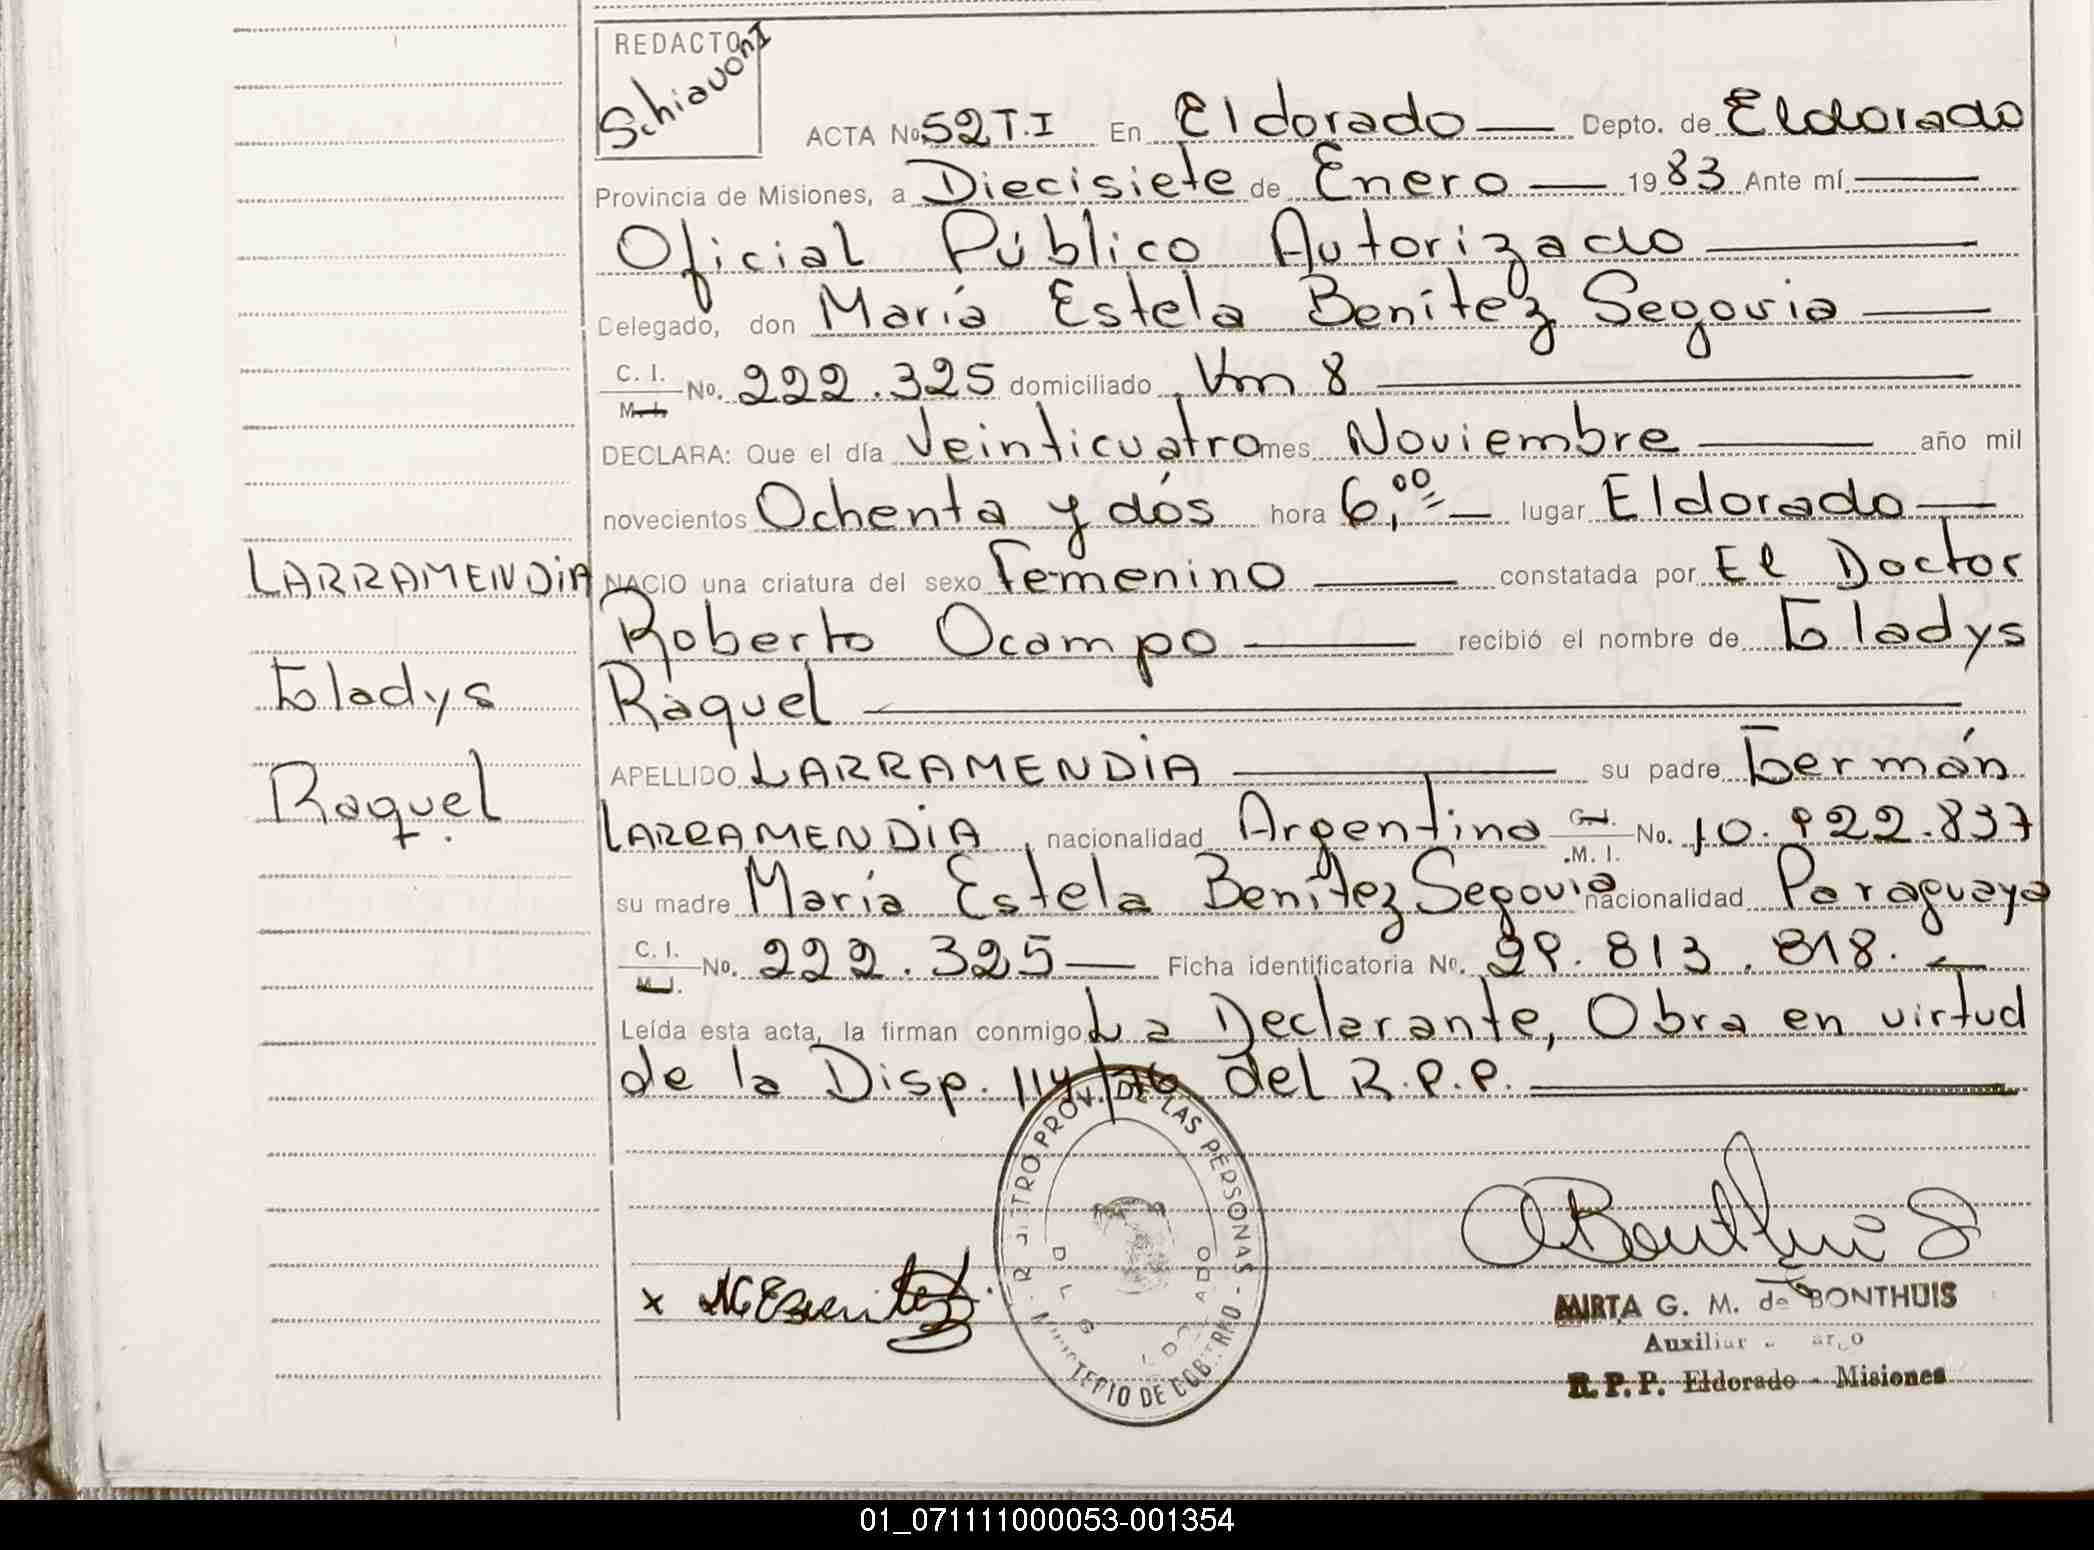 REDACTO
Schiavoni
ACTA No. 52 T.I En Eldorado — Depto. de Eldorado
Provincia de Misiones, a Diecisiete de Enero — 1983 Ante mí —
Oficial Público Autorizado —
Delegado, don María Estela Benítez Segovia —
C. I. M. I. No. 222.325 domiciliado Km 8 —
DECLARA: Que el día Veinticuatro mes Noviembre — año mil
novecientos Ochenta y dós hora 6,00= — lugar Eldorado —
LARRAMENDIA NACIO una criatura del sexo Femenino — constatada por El Doctor
Roberto Ocampo — recibió el nombre de Gladys
Gladys Raquel —
APELLIDO LARRAMENDIA — su padre Germán
Raquel.
LARRAMENDIA, nacionalidad Argentina C. I. M. I. No. 10.922.837
su madre María Estela Benítez Segovia nacionalidad Paraguaya
C. I. M. I. No. 222.325 — Ficha identificatoria No. 29.813.818. —
Leída esta acta, la firman conmigo La Declarante, Obra en virtud
de la Disp. 114/76 del R.P.P. —
REGISTRO PROV. DE LAS PERSONAS - MINISTERIO DE GOBIERNO -
x MEBenitez
MIRTA G. M. de BONTHUIS
Auxiliar
R. P. P. Eldorado - Misiones
01_071111000053-001354